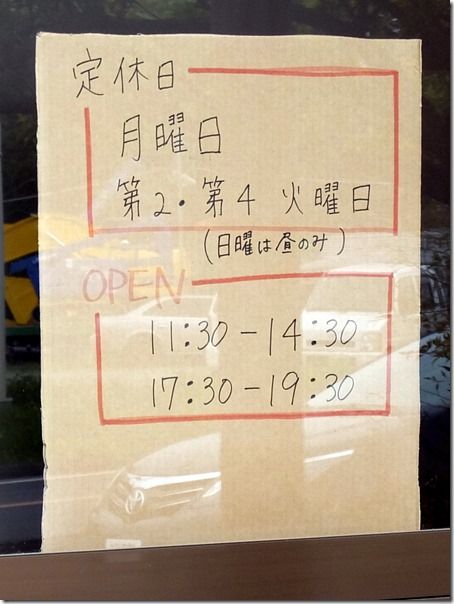 定休日
月曜日
第2・第4 火曜日
(日曜は昼のみ)
OPEN
11:30-14:30
17:30-19:30